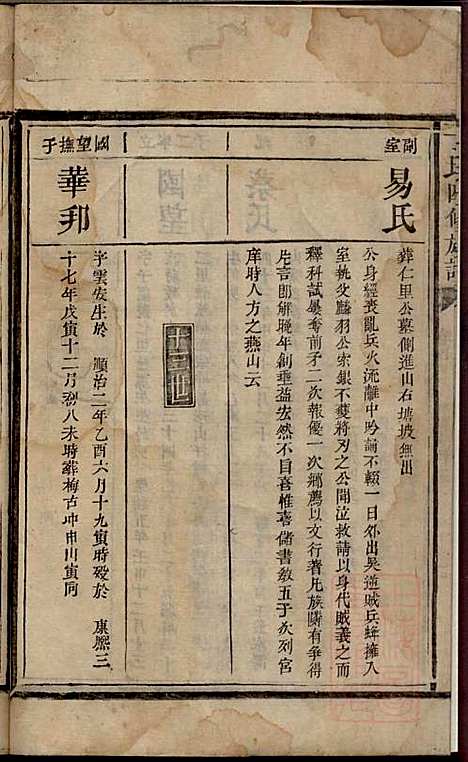 氏四修族譜
副室
易氏
葬仁里公墓側進山右塘坡無出
公身經喪亂兵火流離中吟誦不輟一日外出吳逆賊兵蜂擁入
室執父公索銀不獲將刃之公開泣救請以身代賊義之而
釋科試屢奪前矛二次報優一次鄉薦以文行著凡族鄰有爭得
片言即解晚年創垂益宏然不目喜惟喜儲書教五子次列宮
庠時人方之燕山云
十三世
國望撫子
華邦
字雲安生於 順治二年乙酉六月十九寅時歿於 康熙三
十七年戊寅十二月初八未時葬梅古冲申山寅向